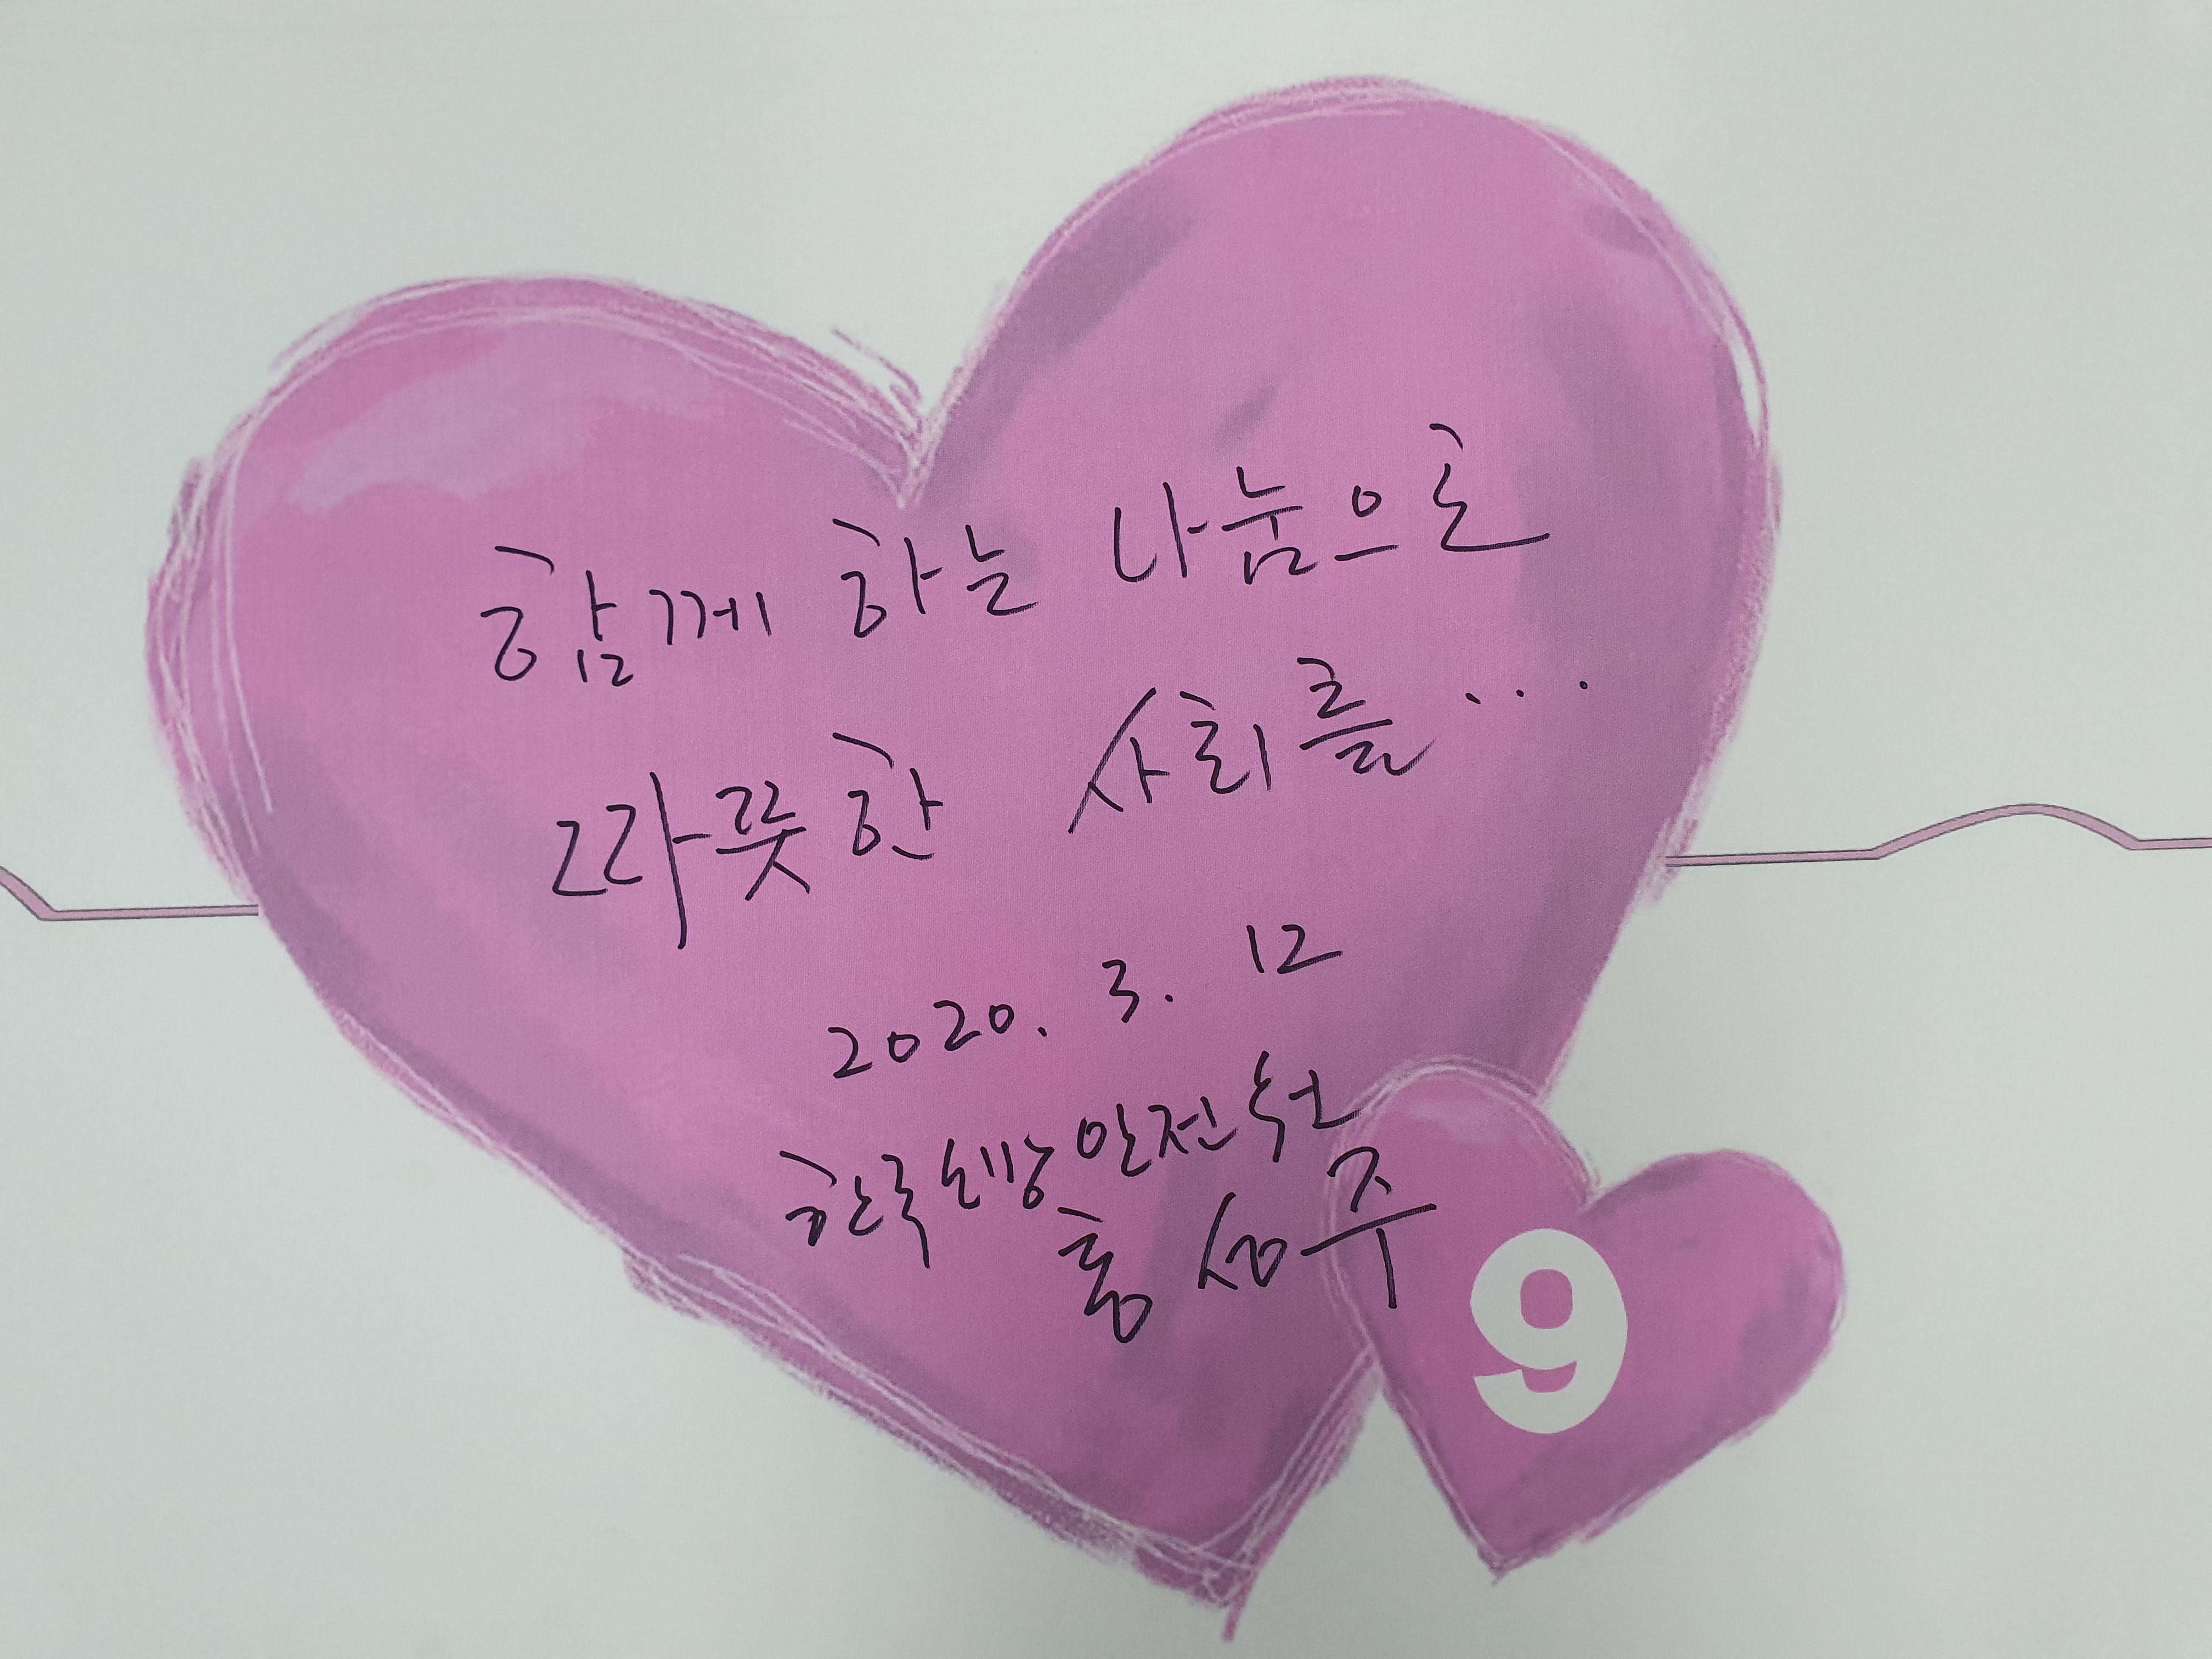 함께 하는 나눔으로
따뜻한 사회를...
2020. 3. 12
한국소방안전원
홍성주
9